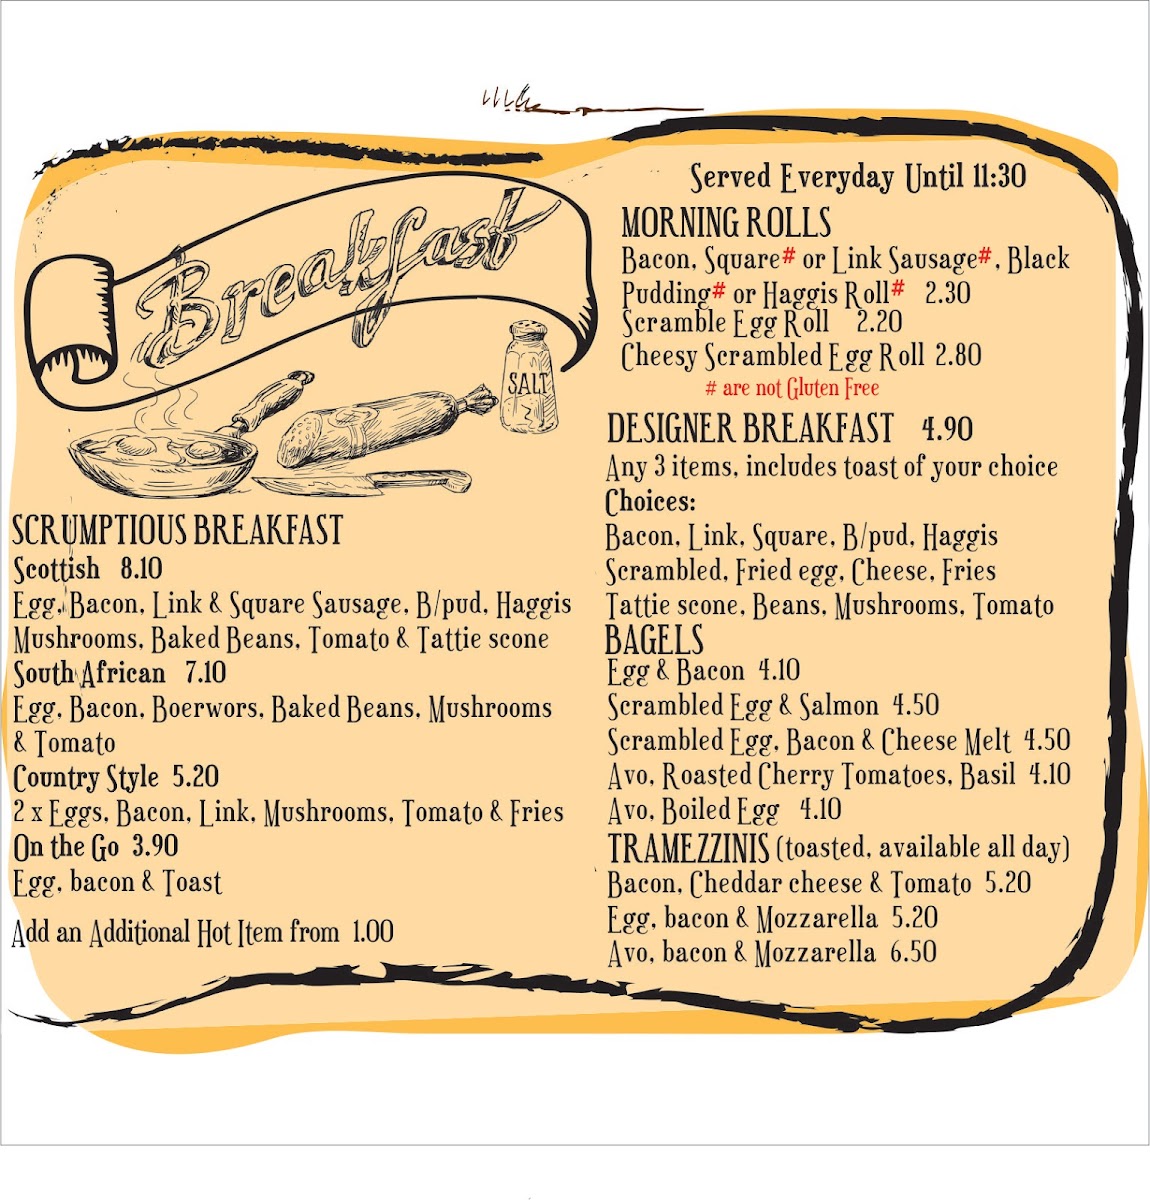 Breakfast
SALT
SCRUMPTIOUS BREAKFAST
Scottish 8.10
Egg, Bacon, Link & Square Sausage, B/pud, Haggis
Mushrooms, Baked Beans, Tomato & Tattie scone
South African 7.10
Egg, Bacon, Boerwors, Baked Beans, Mushrooms
& Tomato
Country Style 5.20
2 x Eggs, Bacon, Link, Mushrooms, Tomato & Fries
On the Go 3.90
Egg, bacon & Toast
Add an Additional Hot Item from 1.00
Served Everyday Until 11:30
MORNING ROLLS
Bacon, Square# or Link Sausage#, Black
Pudding# or Haggis Roll# 2.30
Scramble Egg Roll 2.20
Cheesy Scrambled Egg Roll 2.80
# are not Gluten Free
DESIGNER BREAKFAST 4.90
Any 3 items, includes toast of your choice
Choices:
Bacon, Link, Square, B/pud, Haggis
Scrambled, Fried egg, Cheese, Fries
Tattie scone, Beans, Mushrooms, Tomato
BAGELS
Egg & Bacon 4.10
Scrambled Egg & Salmon 4.50
Scrambled Egg, Bacon & Cheese Melt 4.50
Avo, Roasted Cherry Tomatoes, Basil 4.10
Avo, Boiled Egg 4.10
TRAMEZZINIS (toasted, available all day)
Bacon, Cheddar cheese & Tomato 5.20
Egg, bacon & Mozzarella 5.20
Avo, bacon & Mozzarella 6.50